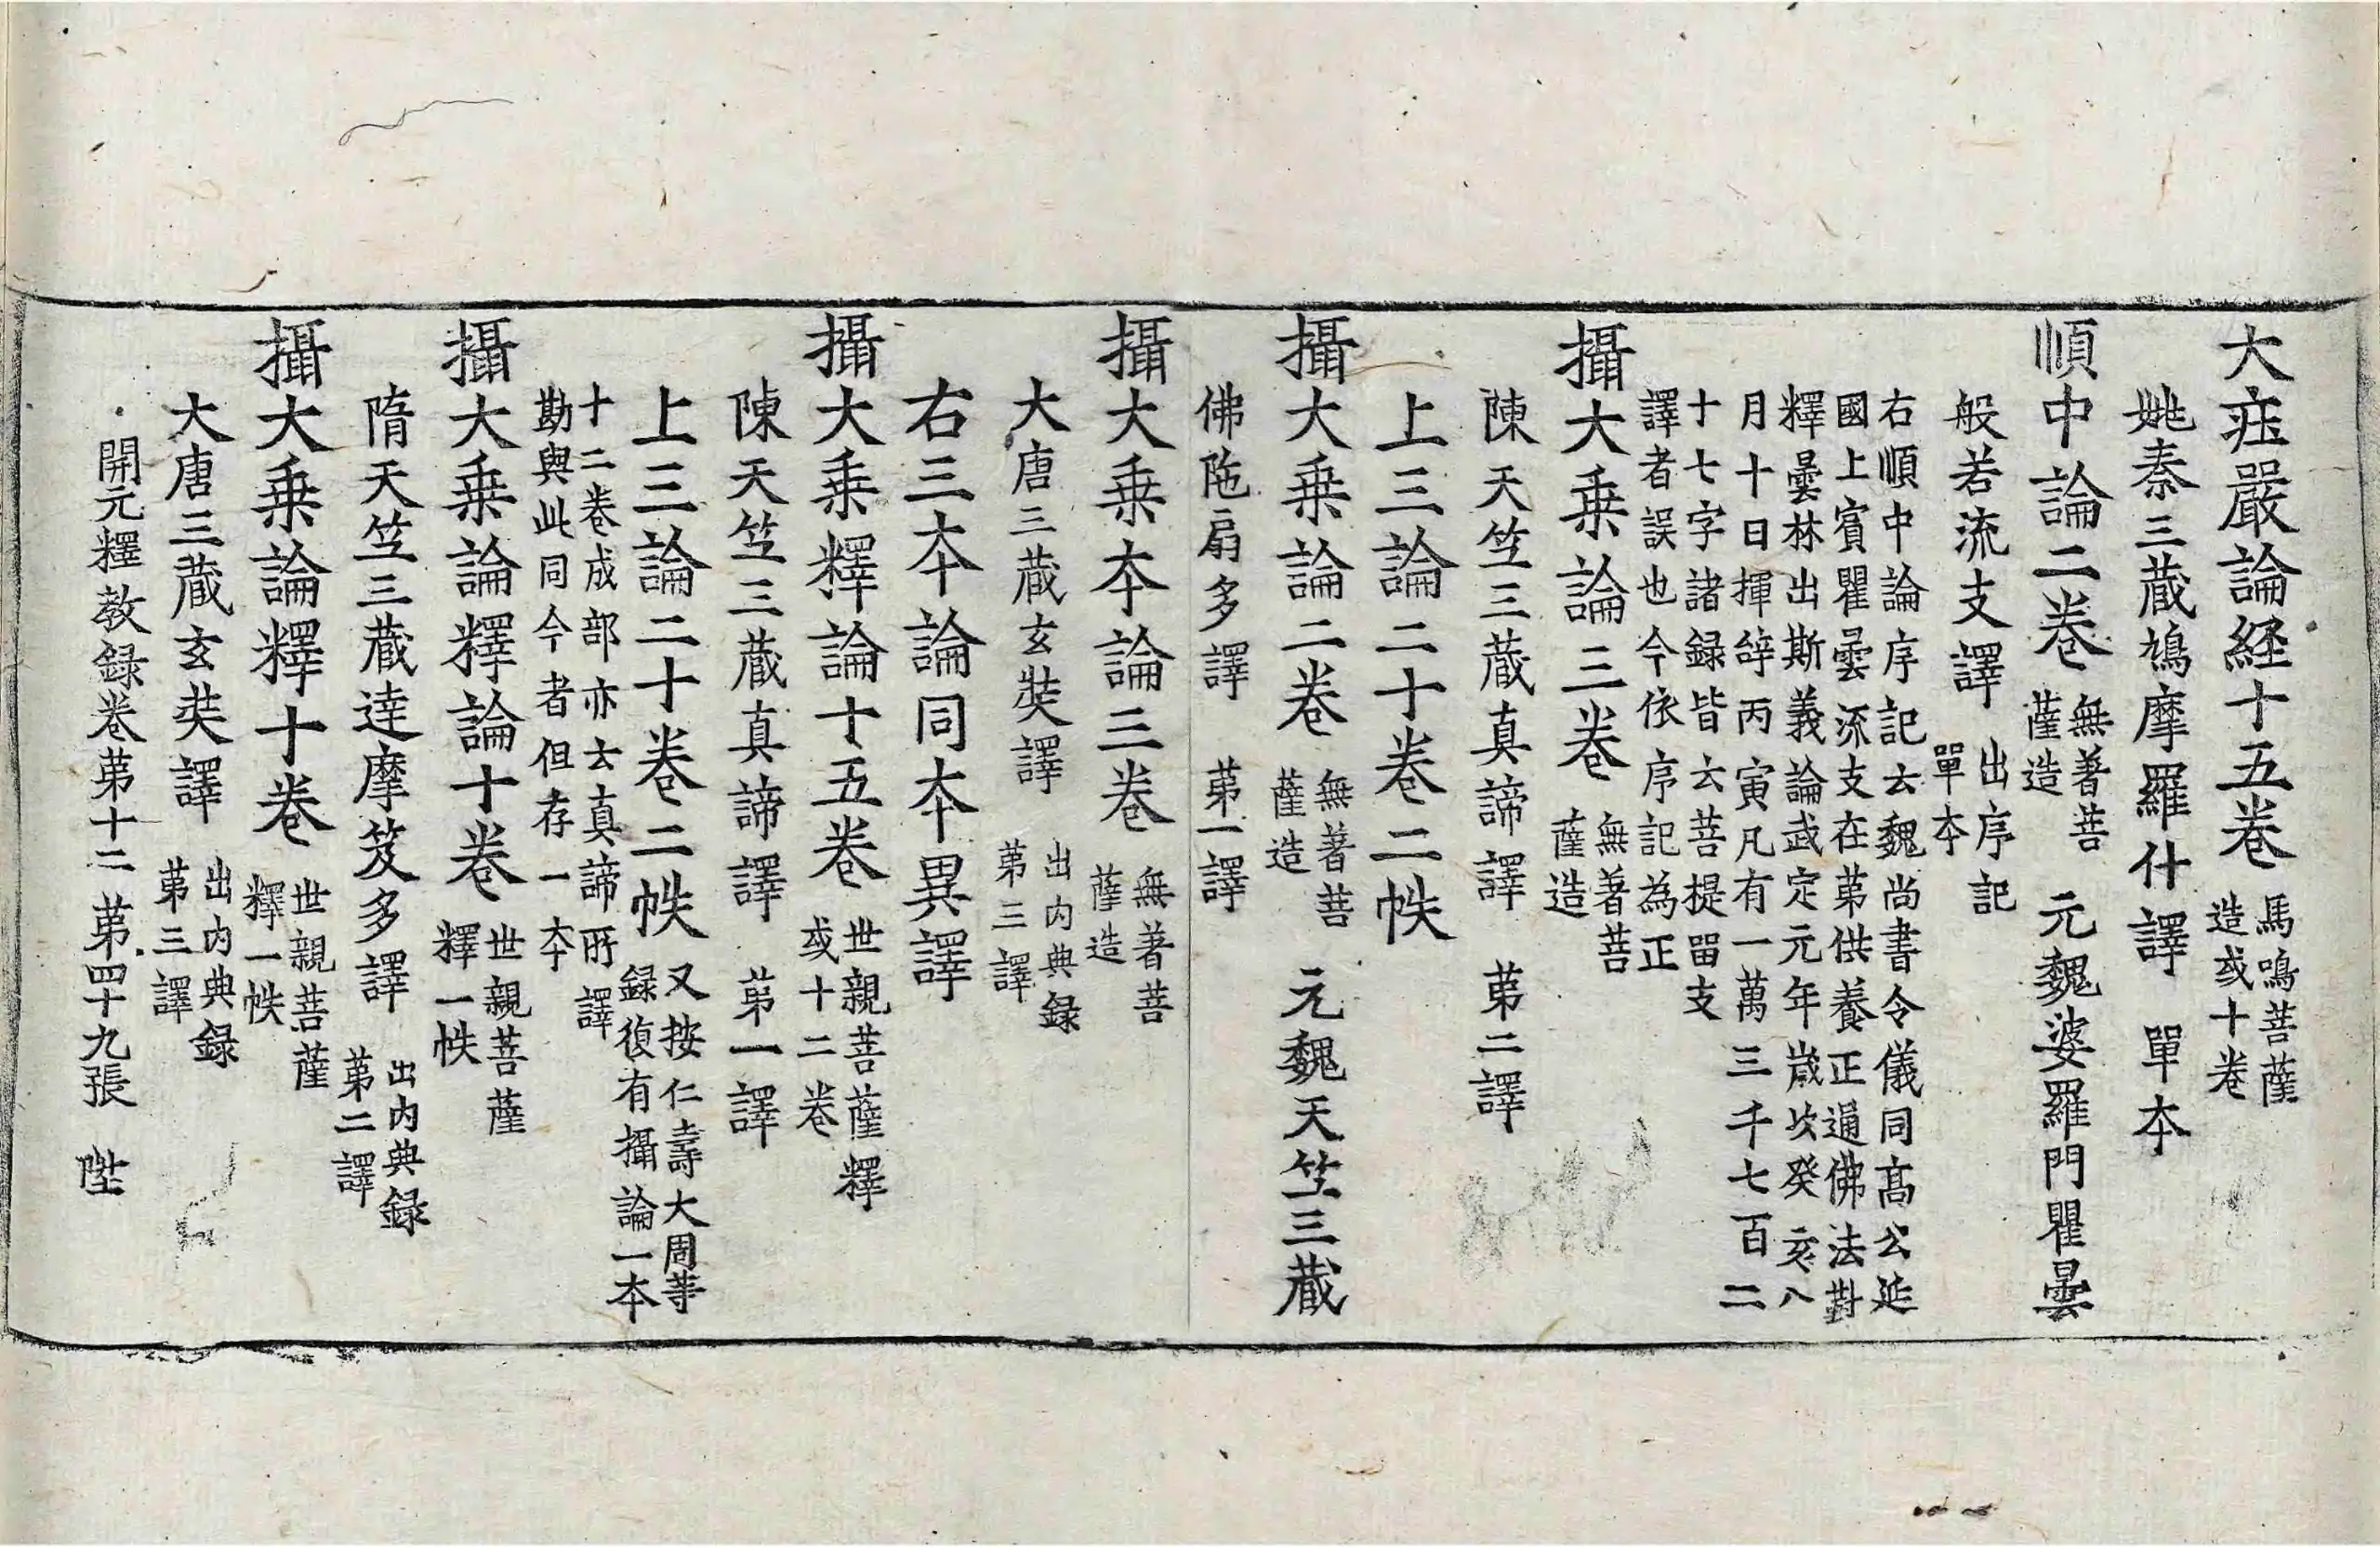 大疰嚴論経十五卷 馬鳴菩薩
造或十卷
姚秦三蔵鳩摩羅什譯 單夲
順中論二卷 無著菩
薩造 元魏婆羅門瞿曇
般若流支譯 出序記
單夲
右順中論序記云魏尚書令儀同髙公延
國上賓瞿曇流支在苐供養正通佛法對
釋曇林出斯義論武定元年嵗次癸亥八
月十日揮辝丙寅凡有一萬三千七百二
十七字諸録皆云菩提留支
譯者誤也今依序記為正
攝大乗論三卷 無著菩
薩造
陳天竺三蔵真諦譯 苐二譯
上三論二十卷二帙
攝大乗論二卷 無著菩
薩造 元魏天竺三蔵
佛陁扇多譯 苐一譯
攝大乗夲論三卷 無著菩
薩造
大唐三蔵玄奘譯 出内典録
苐三譯
右三夲論同夲異譯
攝大乗釋論十五卷 世親菩薩釋
或十二卷
陳天竺三蔵真諦譯 苐一譯
上三論二十卷二帙 又按仁壽大周䓁
録復有攝論一夲
十二卷成部亦云真諦所譯
勘與此同今者但存一夲
攝大乗論釋論十卷 世親菩薩
釋一帙
隋天竺三蔵達摩笈多譯 出内典録
苐二譯
攝大乗論釋十卷 世親菩薩
釋一帙
大唐三蔵玄奘譯 出内典録
苐三譯
開元釋教録卷苐十二 苐四十九張 陞